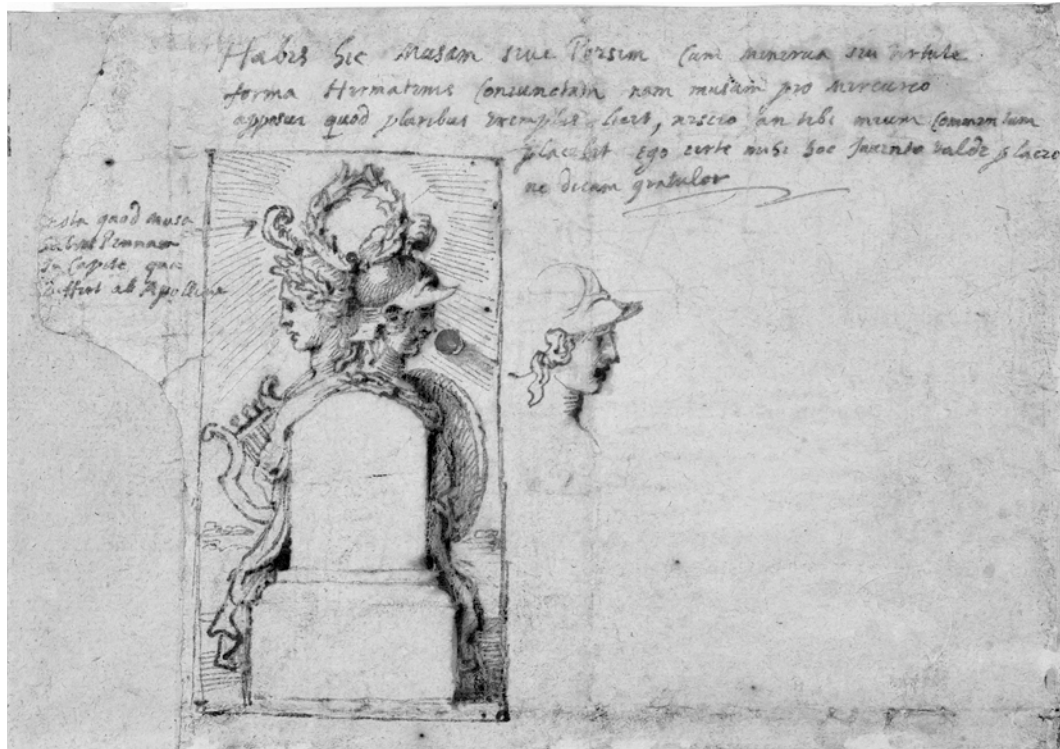 Habes hic Musam sive Poesim cum minerva seu virtute
forma Hermatenis coniunctam nam musam pro mercurio
apposui quod pluribus exemplis licet, nescio an tibi meum commentum
placebit ego certe mihi hoc invento valde placeo
ne dicam gratulor
Nota quod Musa
habeat Pennam
In Capite qua
differt ab Apolline